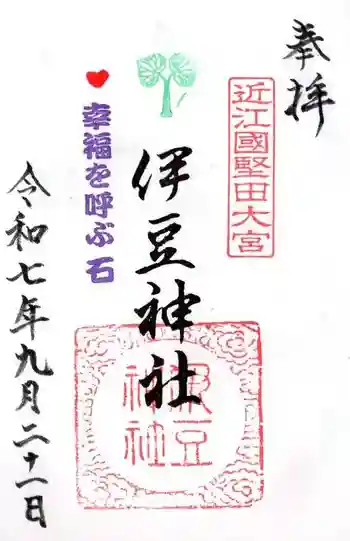 奉拝
近江國堅田大宮
伊豆神社
伊豆神社
幸福を呼ぶ石
令和七年九月二十一日